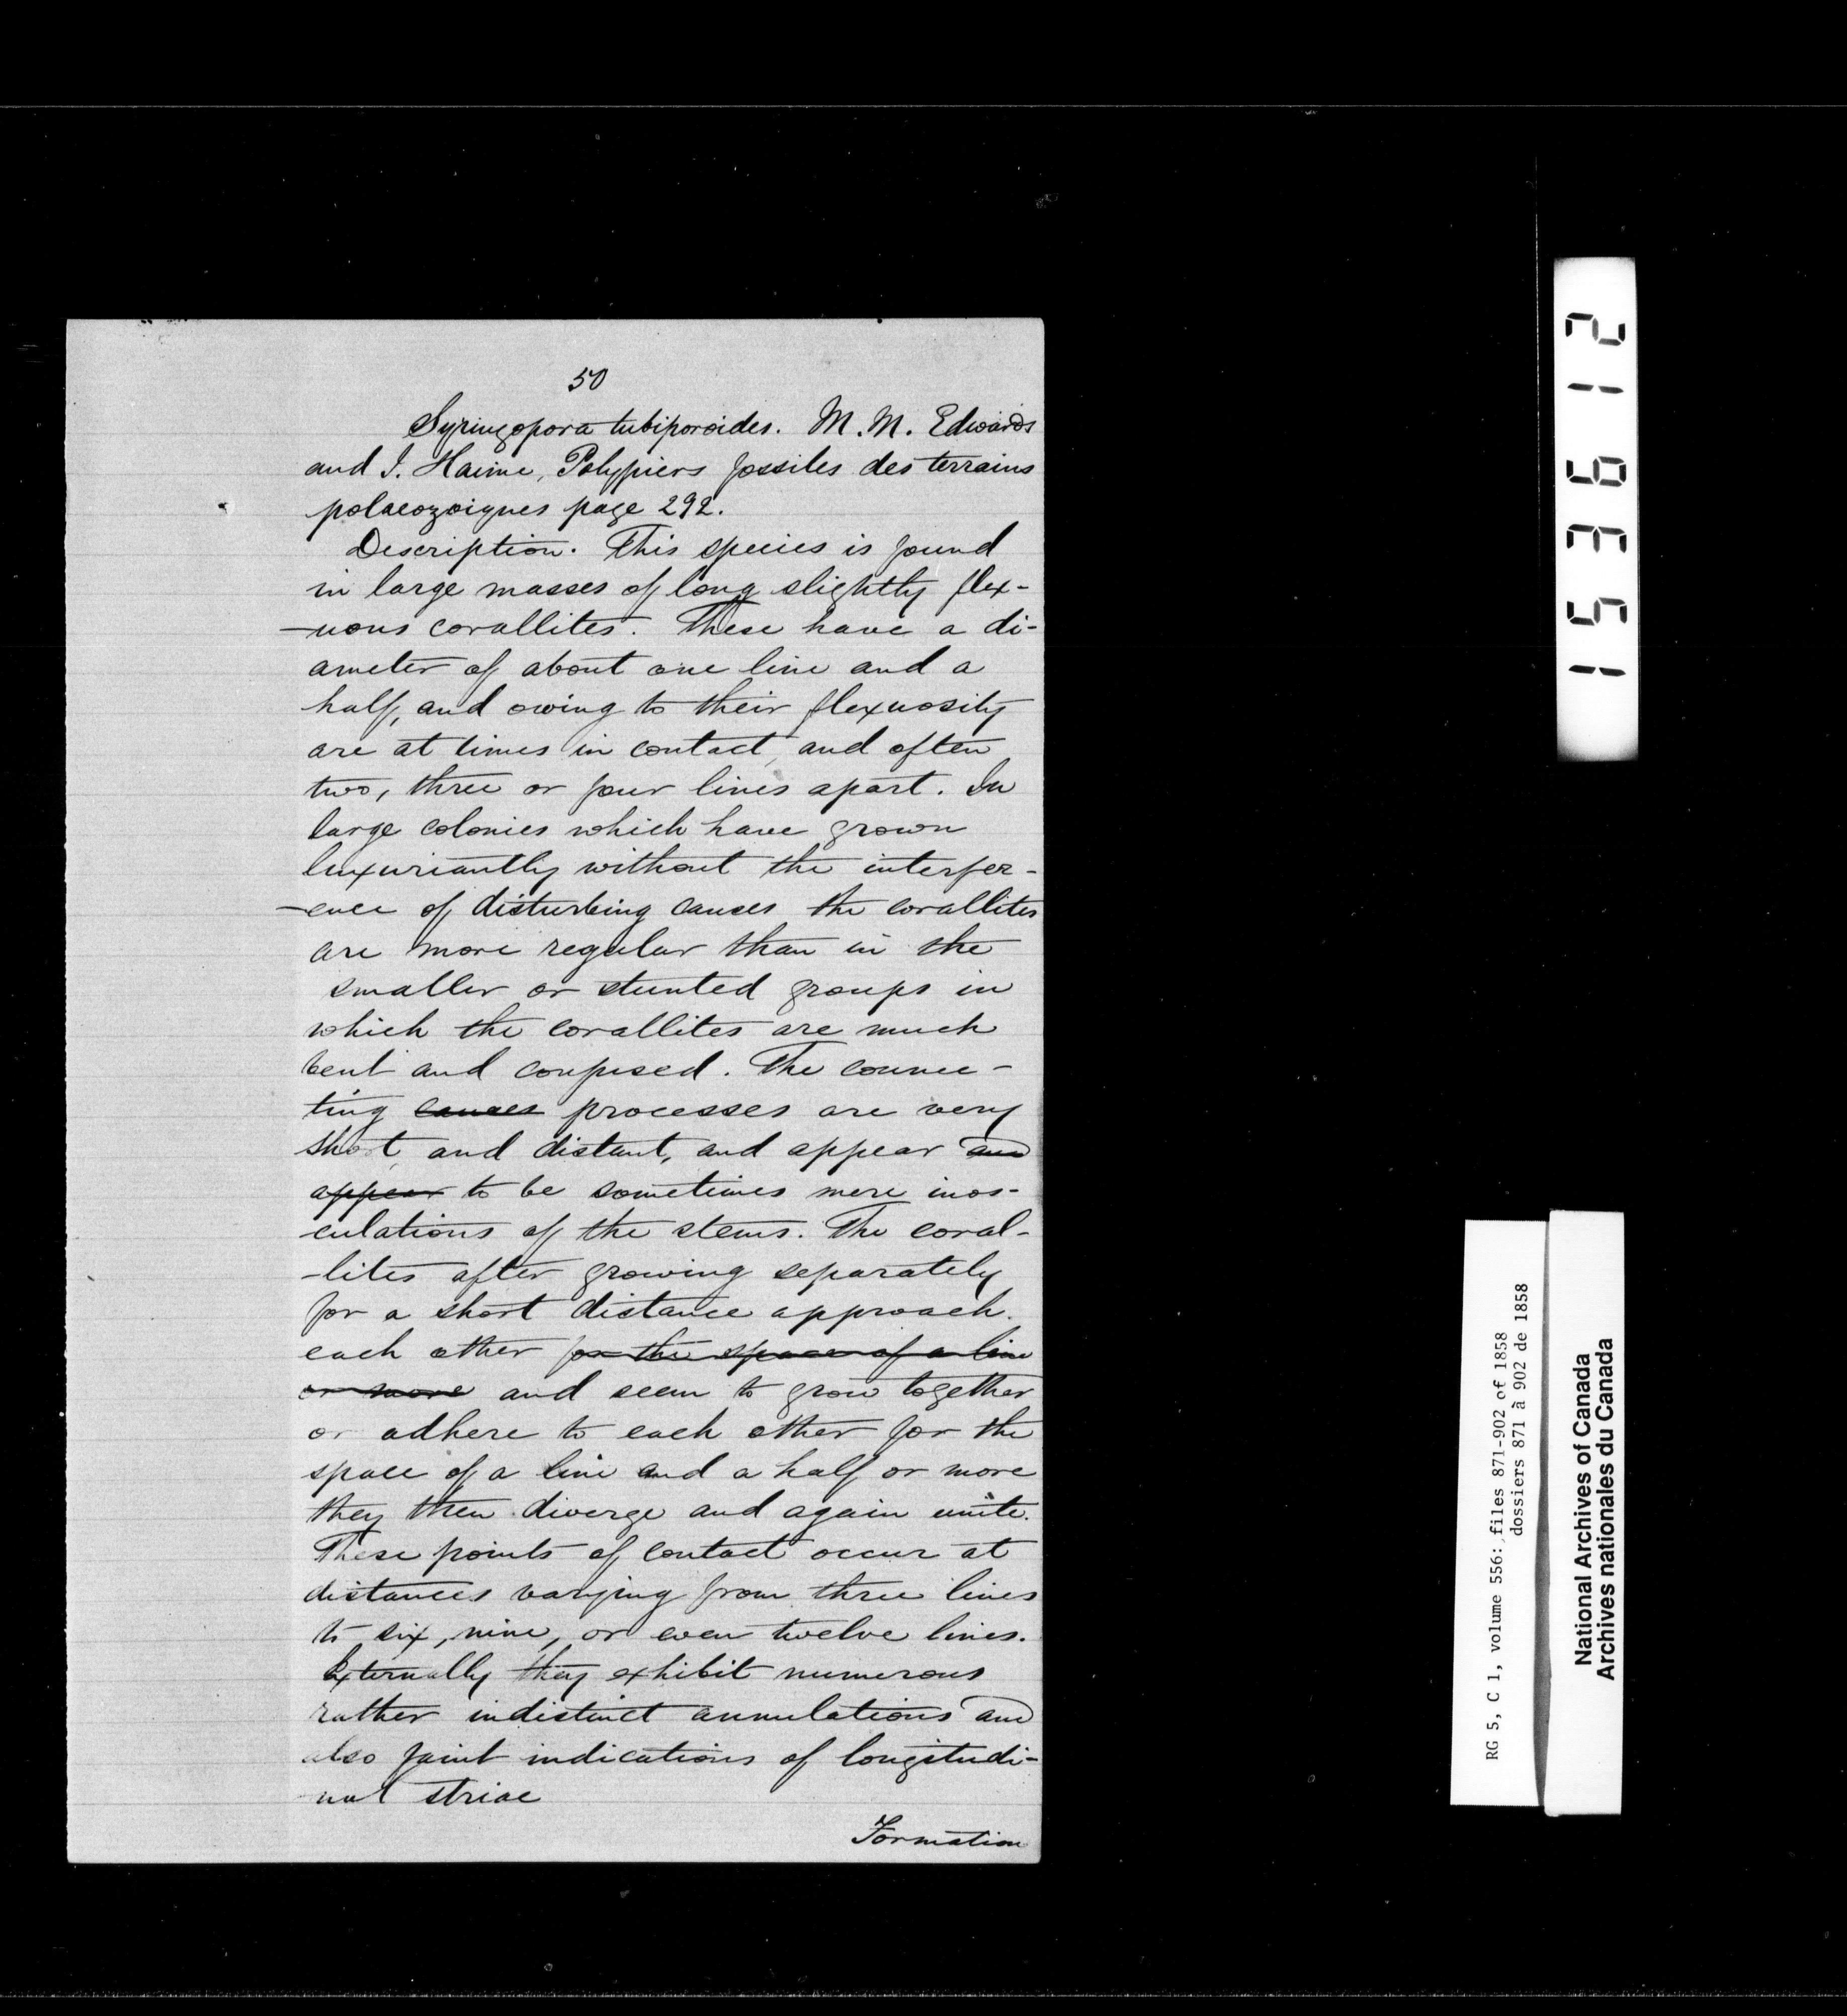 50
Syringopora tubiporoides. M. M. Edwards
and J. Haime, Polypiers fossiles des terrains
polaeozoiques page 292.
Description. This species is found
in large masses of long slightly flex-
-uous corallites. These have a di-
ameter of about one line and a
half, and owing to their flexuosity
are at times in contact, and often
two, three or four lines apart. In
large colonies which have grown
luxuriantly without the interfer-
-ence of disturbing causes the corallites
are more regular than in the
smaller or stunted groups in
which the corallites are much
bent and confused. The connec-
ting causes processes are very
short, and distant, and appear and
appear to be sometimes mere inos-
culations of the stems. The coral-
-lites after growing separately
for a short distance approach
each other for the space of a line
or more and seem to grow together
or adhere to each other for the
space of a line and a half or more
they then diverge and again unite.
These points of contact occur at
distances varying from three lines
to six, nine, or even twelve lines.
Externally they exhibit numerous
rather indistinct annulations and
also faint indications of longitudi-
nal striae
Formation
153612
RG 5, C 1, volume 556: files 871-902 of 1858
dossiers 871 à 902 de 1858
National Archives of Canada
Archives nationales du Canada